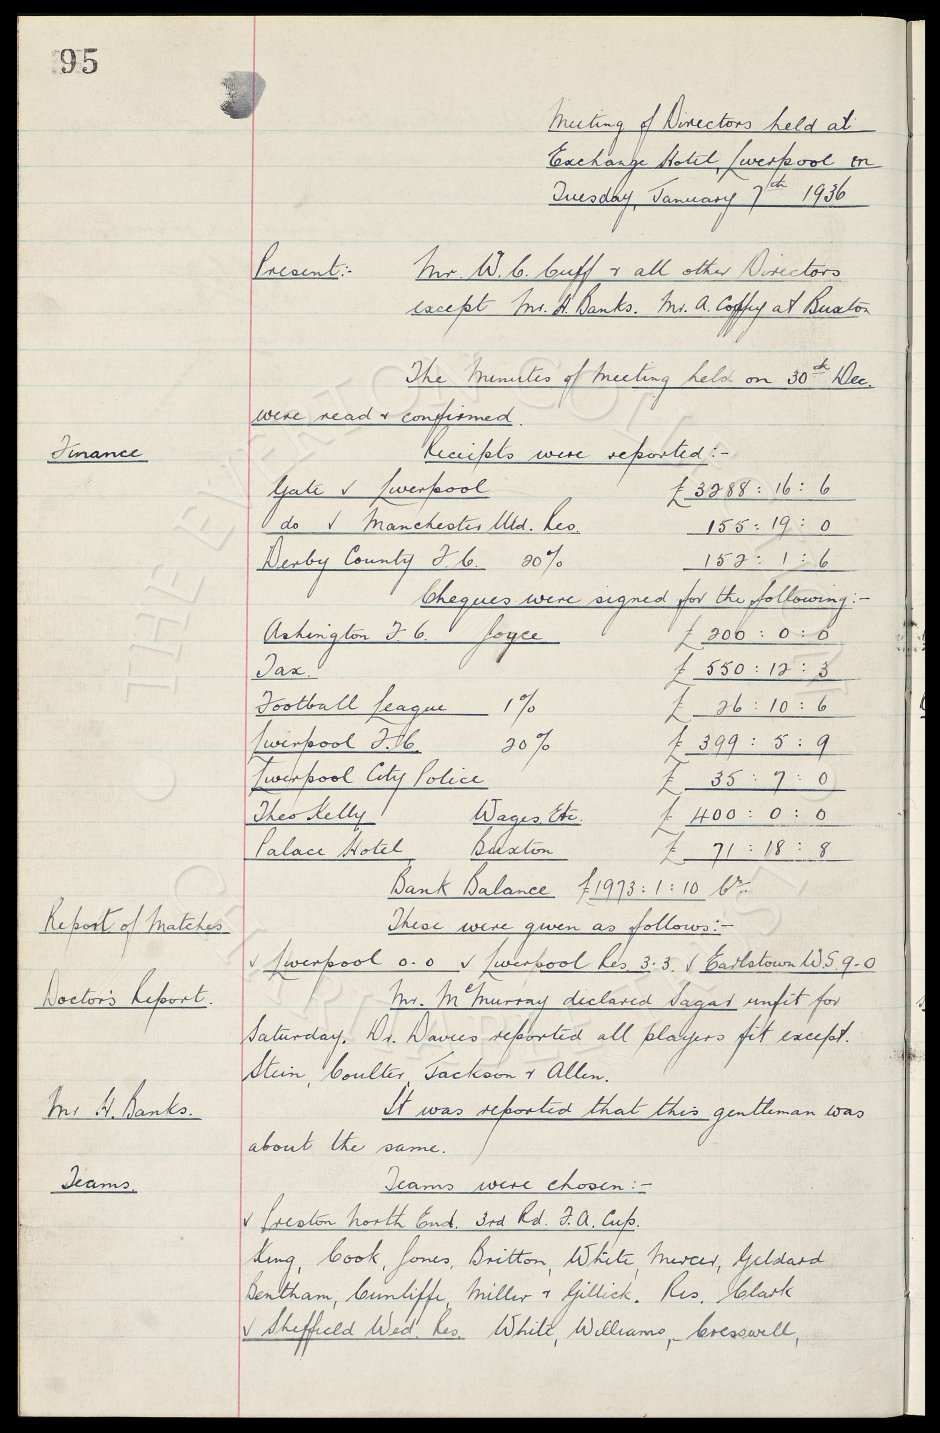 95
Meeting of Directors held at
Exchange Hotel, Liverpool on
Tuesday, January 7th 1936
Present:- Mr. W. C. Cuff & all other Directors
except Mr. H. Banks. Mr. A. Coffey at Buxton
The Minutes of Meeting held on 30th Dec.
were read & confirmed.
Finance Receipts were reported:-
Gate v Liverpool £3288:16:6
do v Manchester Utd. Res. 155:19:0
Derby County F.C. 20% 152:1:6
Cheques were signed for the following:-
Ashington F.C. Joyce £200:0:0
Tax. £550:12:3
Football League 1% £26:10:6
Liverpool F.C. 20% £399:5:9
Liverpool City Police £35:7:0
Theo Kelly Wages. Etc. £400:0:0
Palace Hotel Buxton £71:18:8
Bank Balance £1973:1:10 Cr.
Report of Matches These were given as follows:-
v Liverpool 0-0 v Liverpool Res. 3-3. v Earlstown W.S. 9-0
Doctor's Report. Mr. McMurray declared Sagar unfit for
Saturday. Dr. Davies reported all players fit except.
Stein, Coulter, Jackson & Allen.
Mr H. Banks. It was reported that this gentleman was
about the same.
Teams. Teams were chosen:-
v Preston North End. 3rd Rd. F.A. Cup.
King, Cook, Jones, Britton, White, Mercer, Geldard
Bentham, Cunliffe, Miller & Gillick. Res. Clark
v Sheffield Wed. Res. White, Williams, Cresswell,
© THE EVERTON COLLECTION
CHARITABLE TRUST